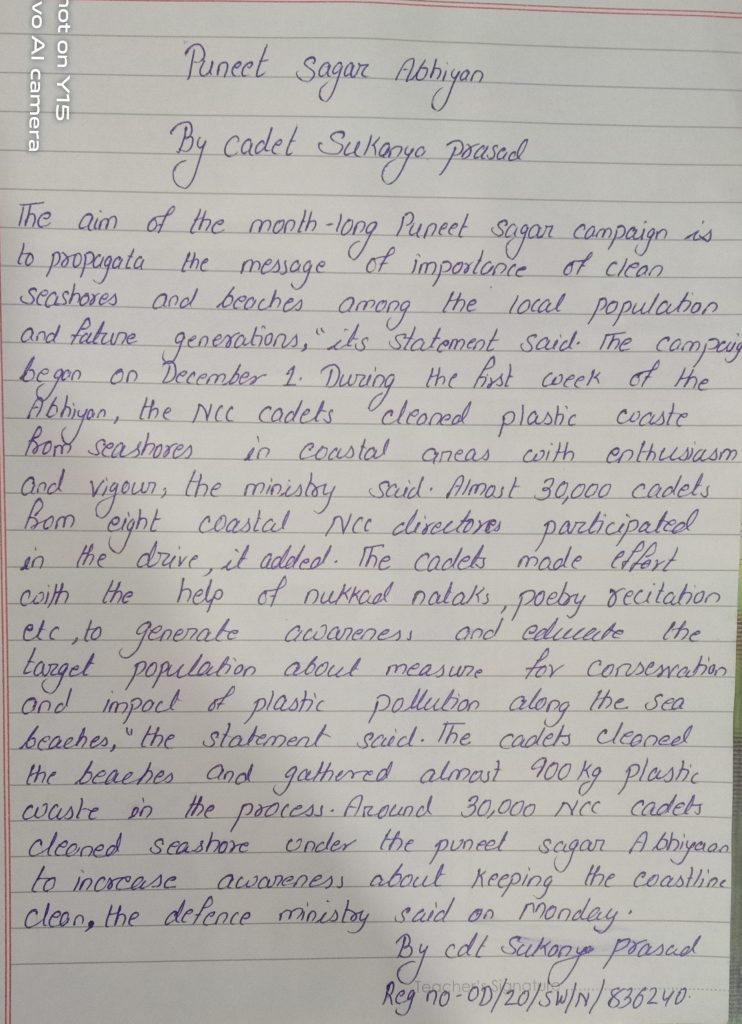 Puneet Sagar Abhiyan
By cadet Sukanya prasad
The aim of the month-long Puneet sagar campaign is
to propagata the message of importance of clean
seashores and beaches among the local population
and future generations," its statement said. The campaig
began on December 1. During the first week of the
Abhiyan, the NCC cadets cleaned plastic waste
from seashores in coastal areas with enthusiasm
and vigour, the ministry said. Almost 30,000 cadets
from eight coastal NCC directores participated
in the drive, it added. The cadets made effort
with the help of nukkad nataks, poetry recitation
etc, to generate awareness and educate the
target population about measure for conservation
and impact of plastic pollution along the sea
beaches," the statement said. The cadets cleaned
the beaches and gathered almost 900 kg plastic
waste in the process. Around 30,000 NCC cadets
cleaned seashore under the puneet sagar Abhiyaan
to increase awareness about keeping the coastline
clean, the defence ministry said on Monday.
By cdt Sukanya prasad
Teacher's Signature
Reg no - OD/20/SW/N/836240.
hot on Y15
vo AI camera